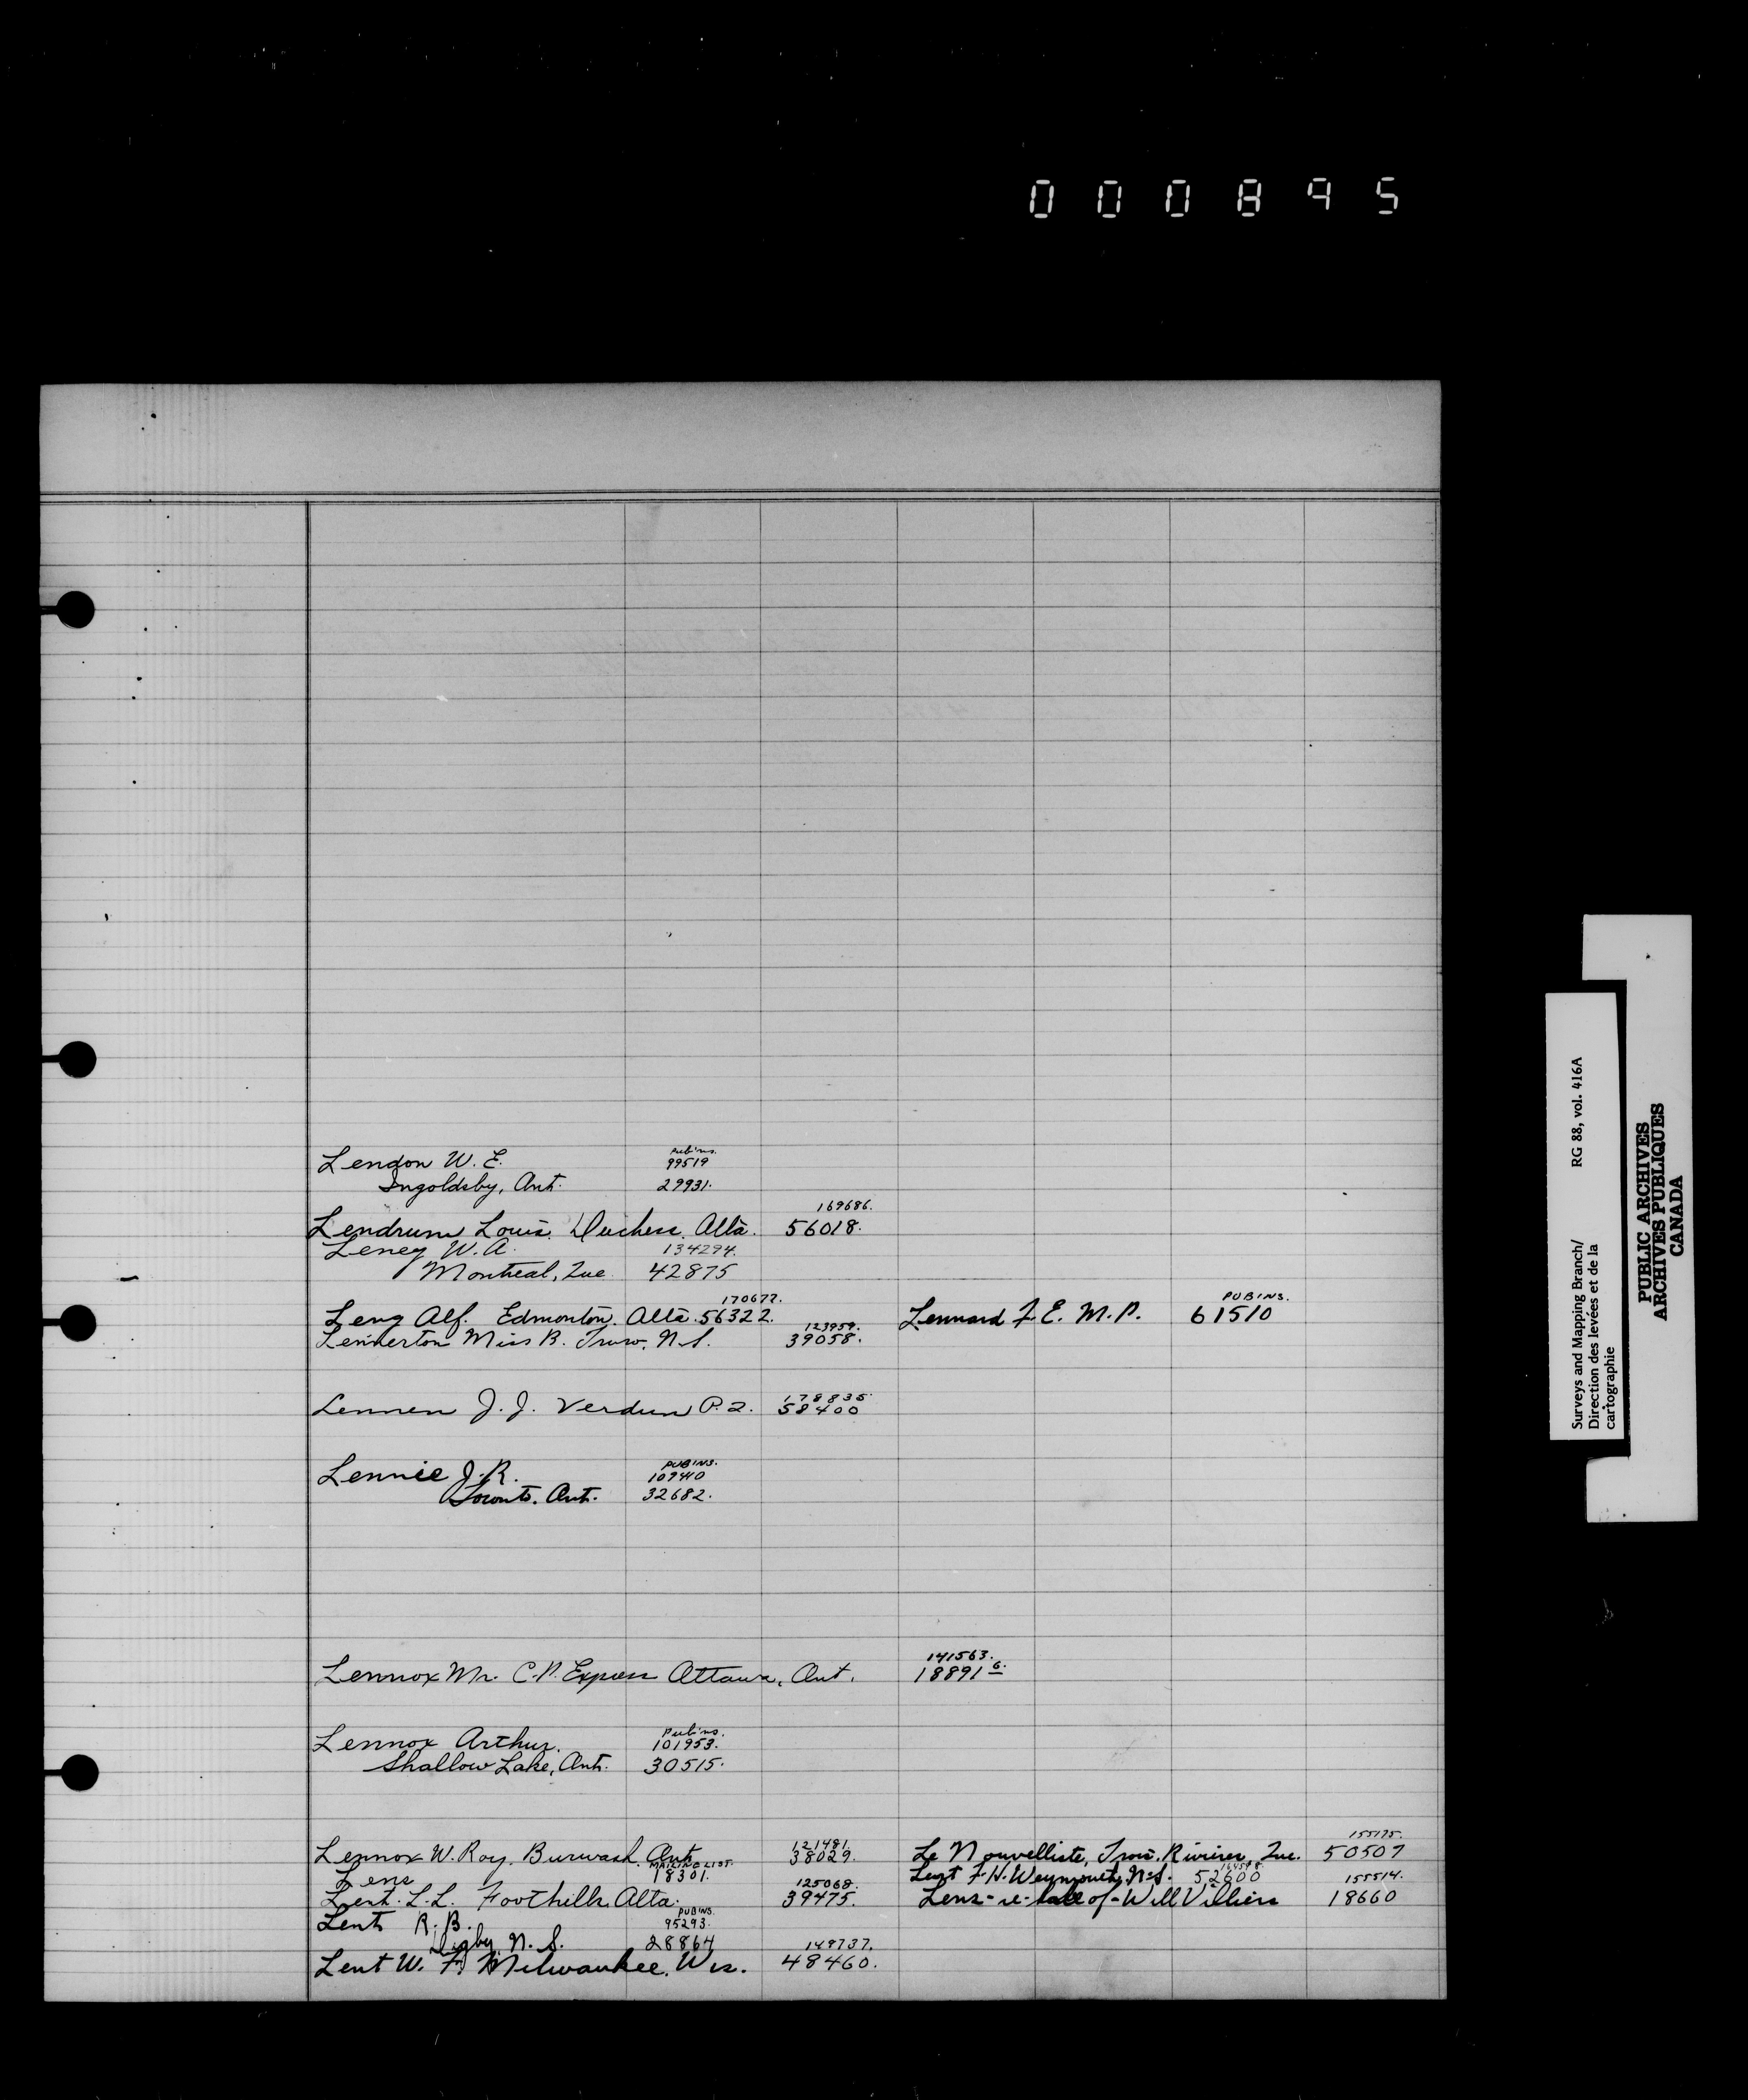 000895
Lendon W. E. Pubins. 99519
Ingoldsby, Ont. 29931.
169686.
Lendrum Louis. Duchess. Alta. 56018.
Leney W. A. 134294.
Montreal, Que. 42875
170677. PUBINS.
Leng Alf. Edmonton. Alta. 56322. Lennard F. E. M. P. 61510
123959.
Lennerton Miss B. Truro, N.S. 39058.
178835.
Lennen J. J. Verdun P.Q. 58400
PUBINS.
Lennie J. R. 109410
Toronto. Ont. 32682.
141563.
Lennox Mr. C.P. Express Ottawa, Ont. 18891 6.
Pubins.
Lennox Arthur. 101953.
Shallow Lake, Ont. 30515.
121481. 155175.
Lennox W. Roy. Burwash. Ont. 38029. Le Nouvelliste, Trois Rivieres, Que. 50507
MAILING LIST.
Lens 18301. Lent F. H. Weymouth, N.S. 52600
125068. 155514.
Lent. L. L. Foothills. Alta. 39475. Lens-re-hall of-Will Villiers 18660
PUBINS.
Lent R. B. 95293.
Digby, N. S. 28864
149737.
Lent W. F. Milwaukee. Wis. 48460.
Surveys and Mapping Branch/ RG 88, vol. 416A
Direction des levées et de la
cartographie
PUBLIC ARCHIVES
ARCHIVES PUBLIQUES
CANADA